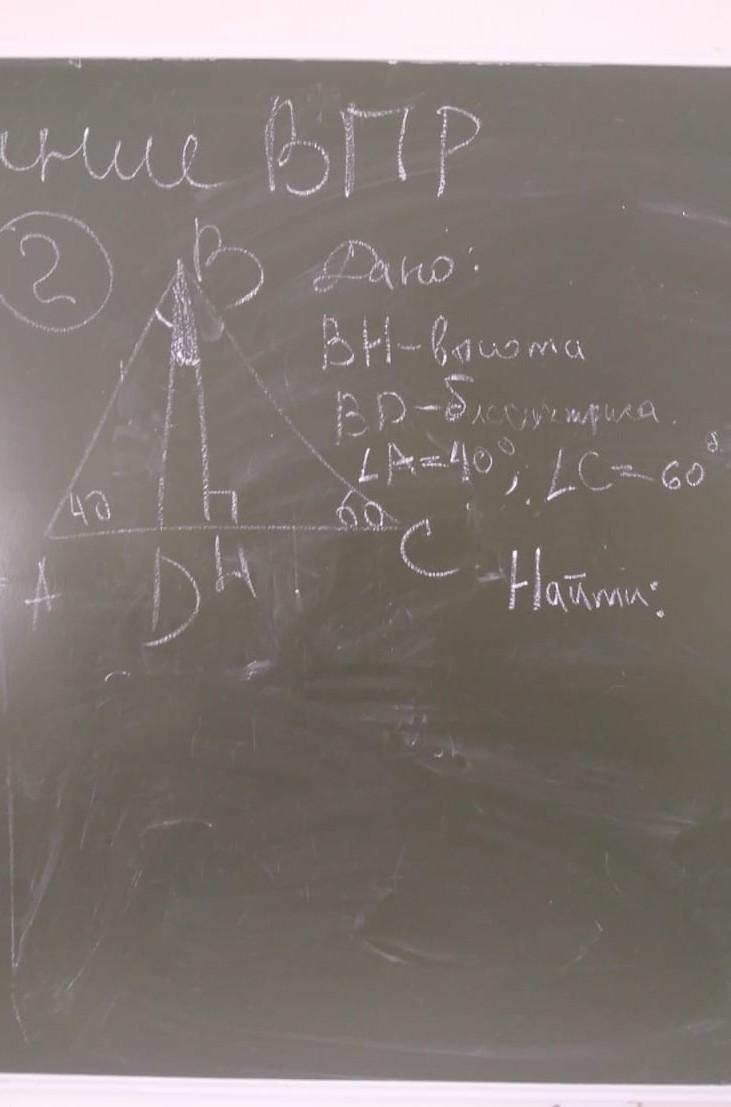 ВПР
2
B
Дано:
BH-высота
BD-биссектриса.
∠A=40°; ∠C=60°
40
60
A
D
H
C
Найти: